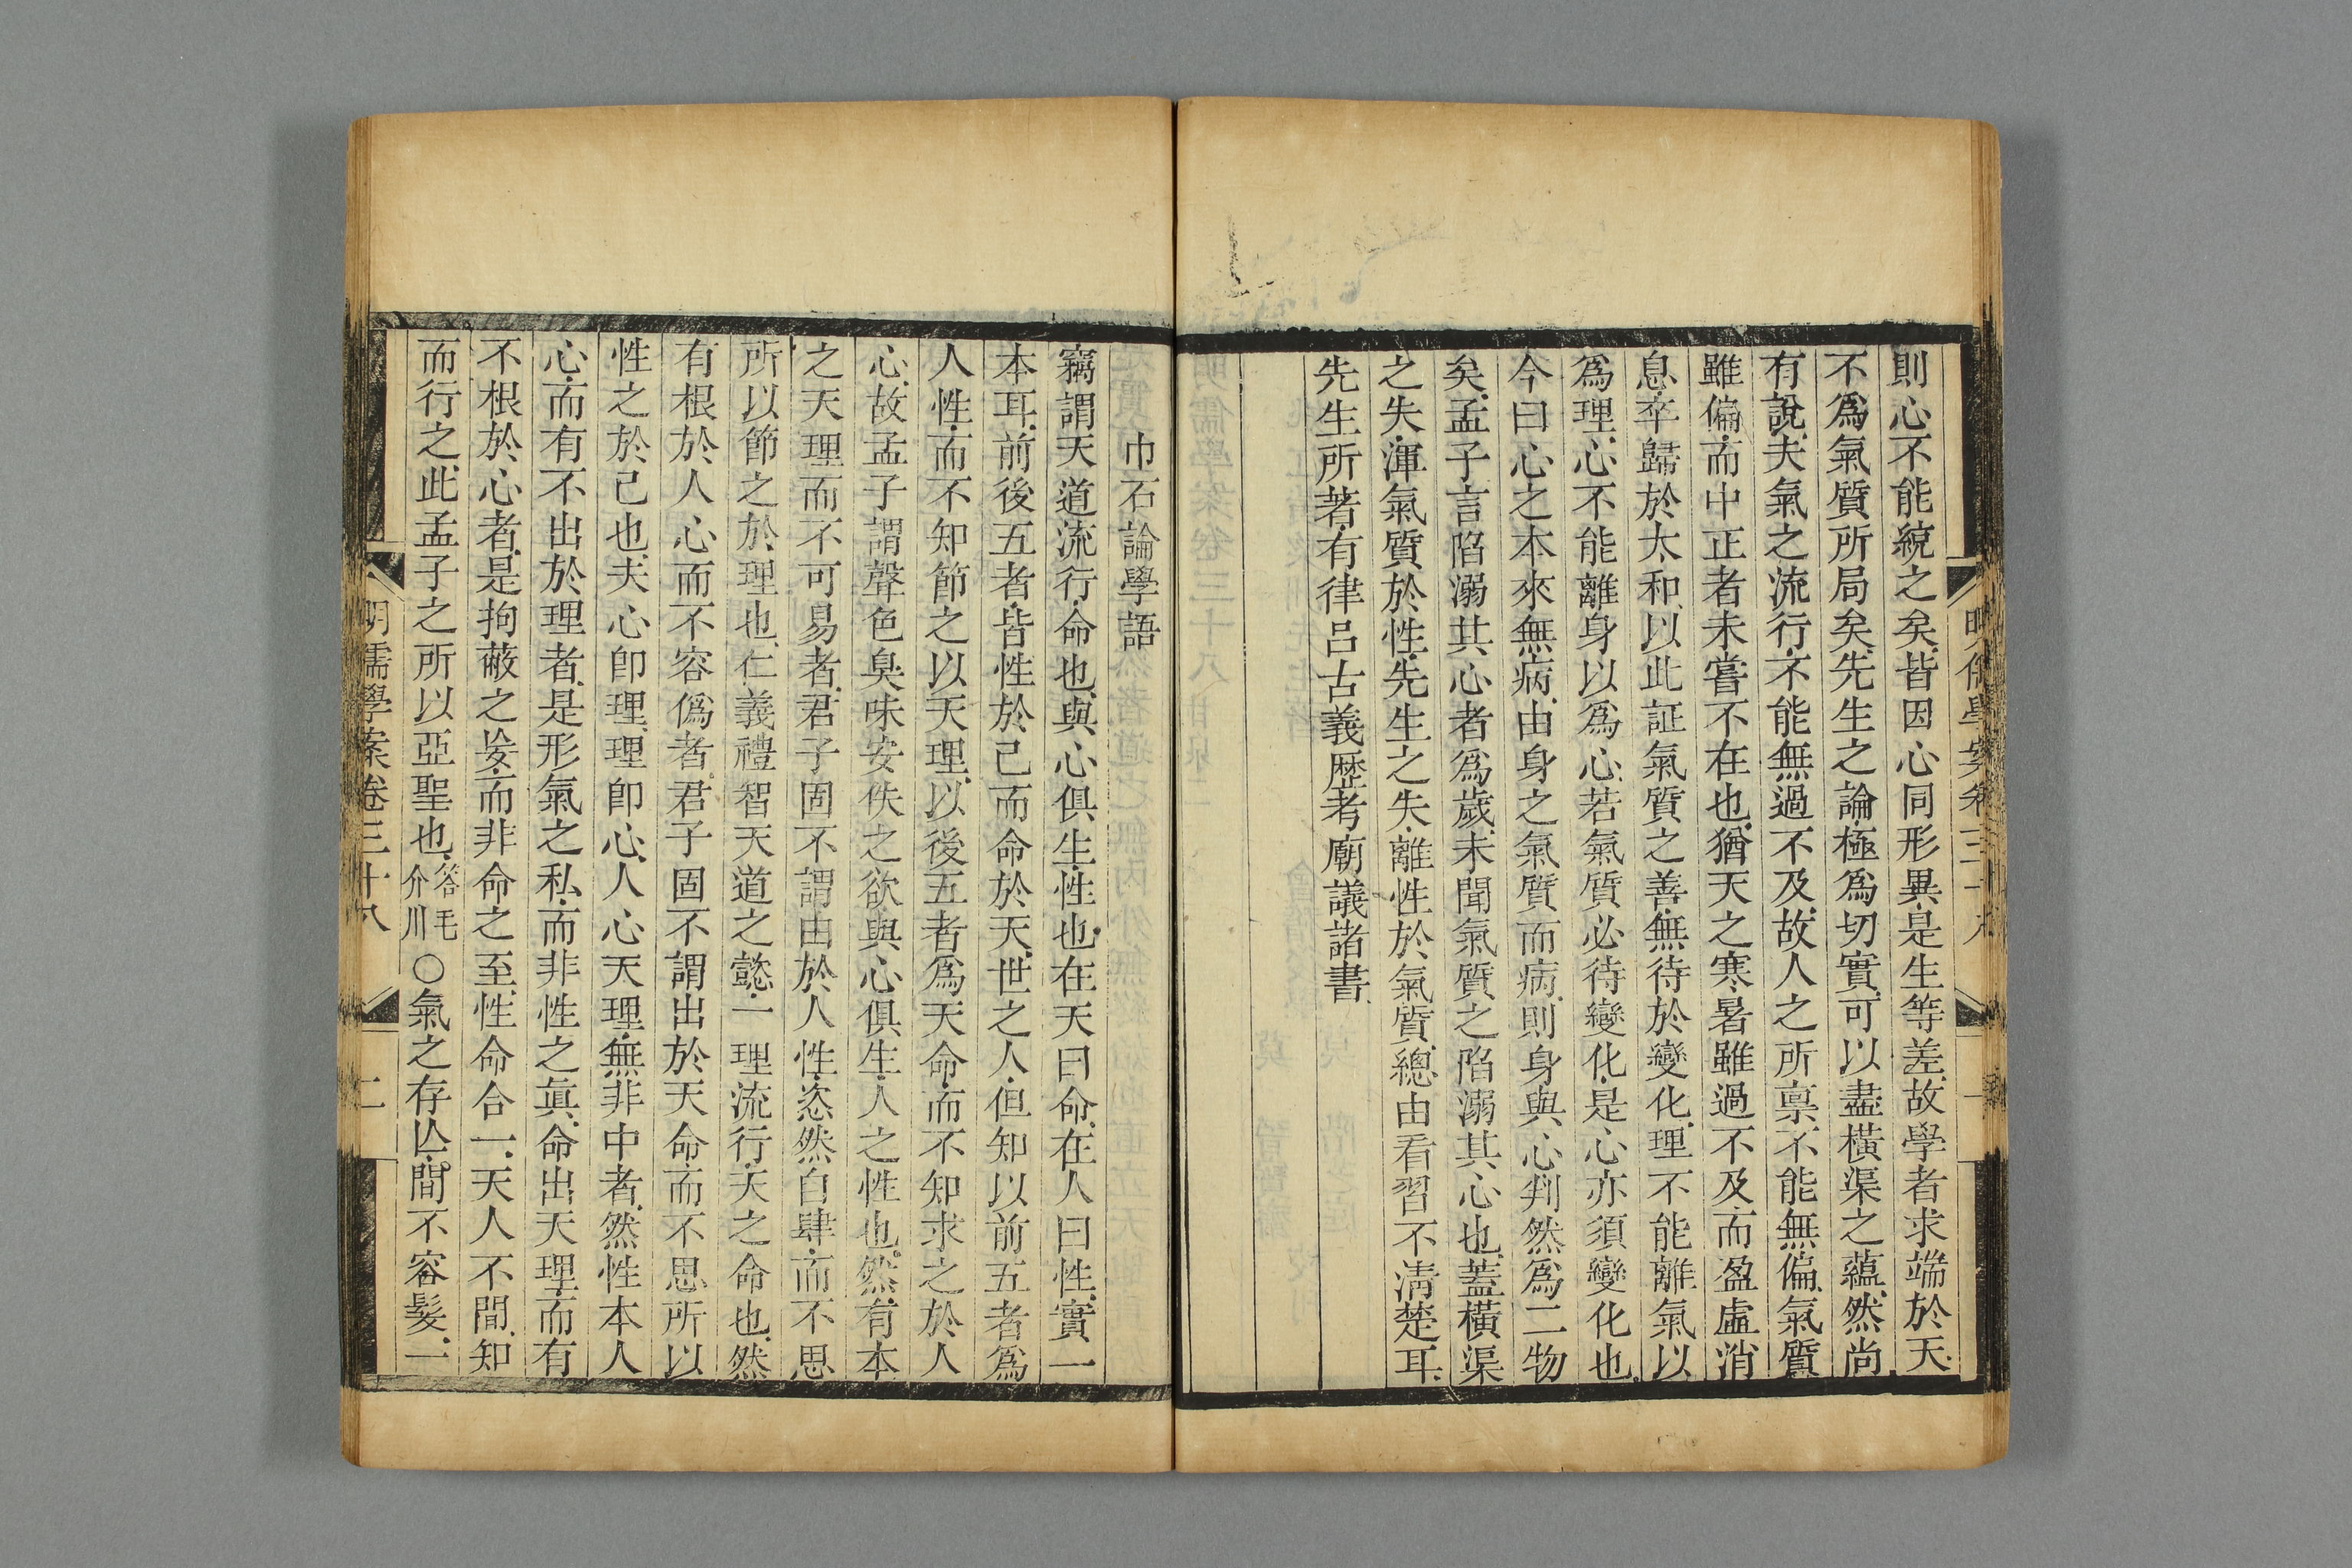 則心不能統之矣皆因心同形異是生等差故學者求端於天
不爲氣質所局矣先生之論極爲切實可以盡橫渠之蘊然尚
有說夫氣之流行不能無過不及故人之所稟不能無偏氣質
雖偏而中正者未嘗不在也猶天之寒暑雖過不及而盈虛消
息卒歸於太和以此証氣質之善無待於變化理不能離氣以
爲理心不能離身以爲心若氣質必待變化是心亦須變化也
今曰心之本來無病由身之氣質而病則身與心判然爲二物
矣孟子言陷溺其心者爲歲未聞氣質之陷溺其心也蓋橫渠
之失渾氣質於性先生之失離性於氣質總由看習不淸楚耳
先生所著有律呂古義歷考廟議諸書
巾石論學語
竊謂天道流行命也與心俱生性也在天曰命在人曰性實一
本耳前後五者皆性於己而命於天世之人但知以前五者爲
人性而不知節之以天理以後五者爲天命而不知求之於人
心故孟子謂聲色臭味安佚之欲與心俱生人之性也然有本
之天理而不可易者君子固不謂由於人性恣然自肆而不思
所以節之於理也仁義禮智天道之懿一理流行天之命也然
有根於人心而不容僞者君子固不謂出於天命而不思所以
性之於己也夫心卽理理卽心人心天理無非中者然性本人
心而有不出於理者是形氣之私而非性之眞命出天理而有
不根於心者是拘蔽之妄而非命之至性命合一天人不間知
而行之此孟子之所以亞聖也答毛介川○氣之存亾間不容髮一
明儒學案卷三十八
二